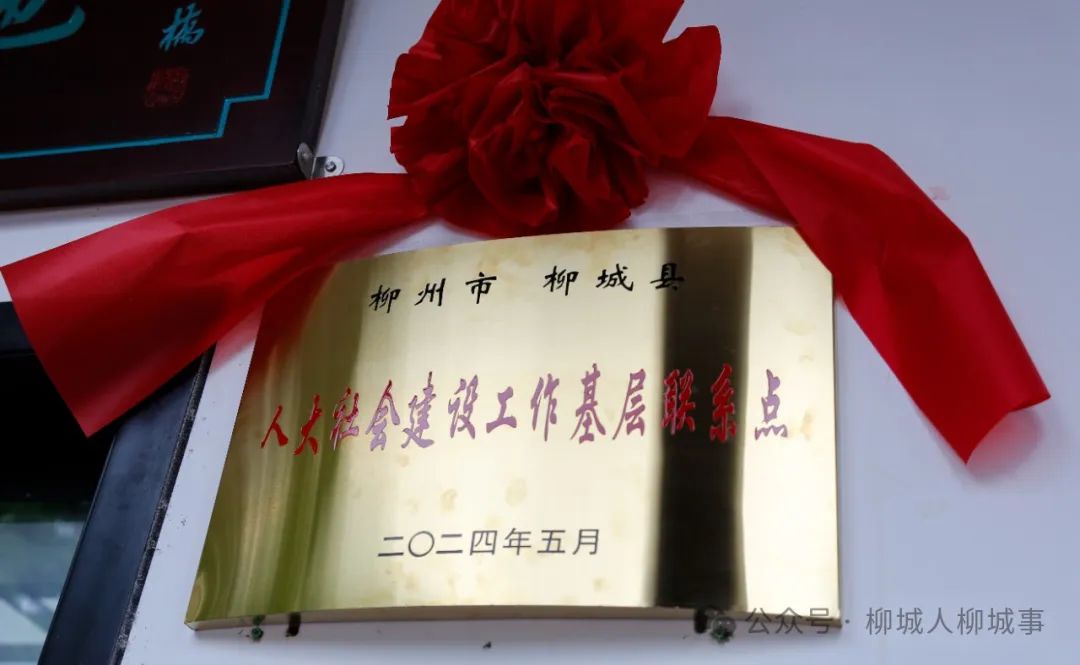 橋
柳州市 柳城县
人大社会建设工作基层联系点
二〇二四年五月
公众号·柳城人柳城事